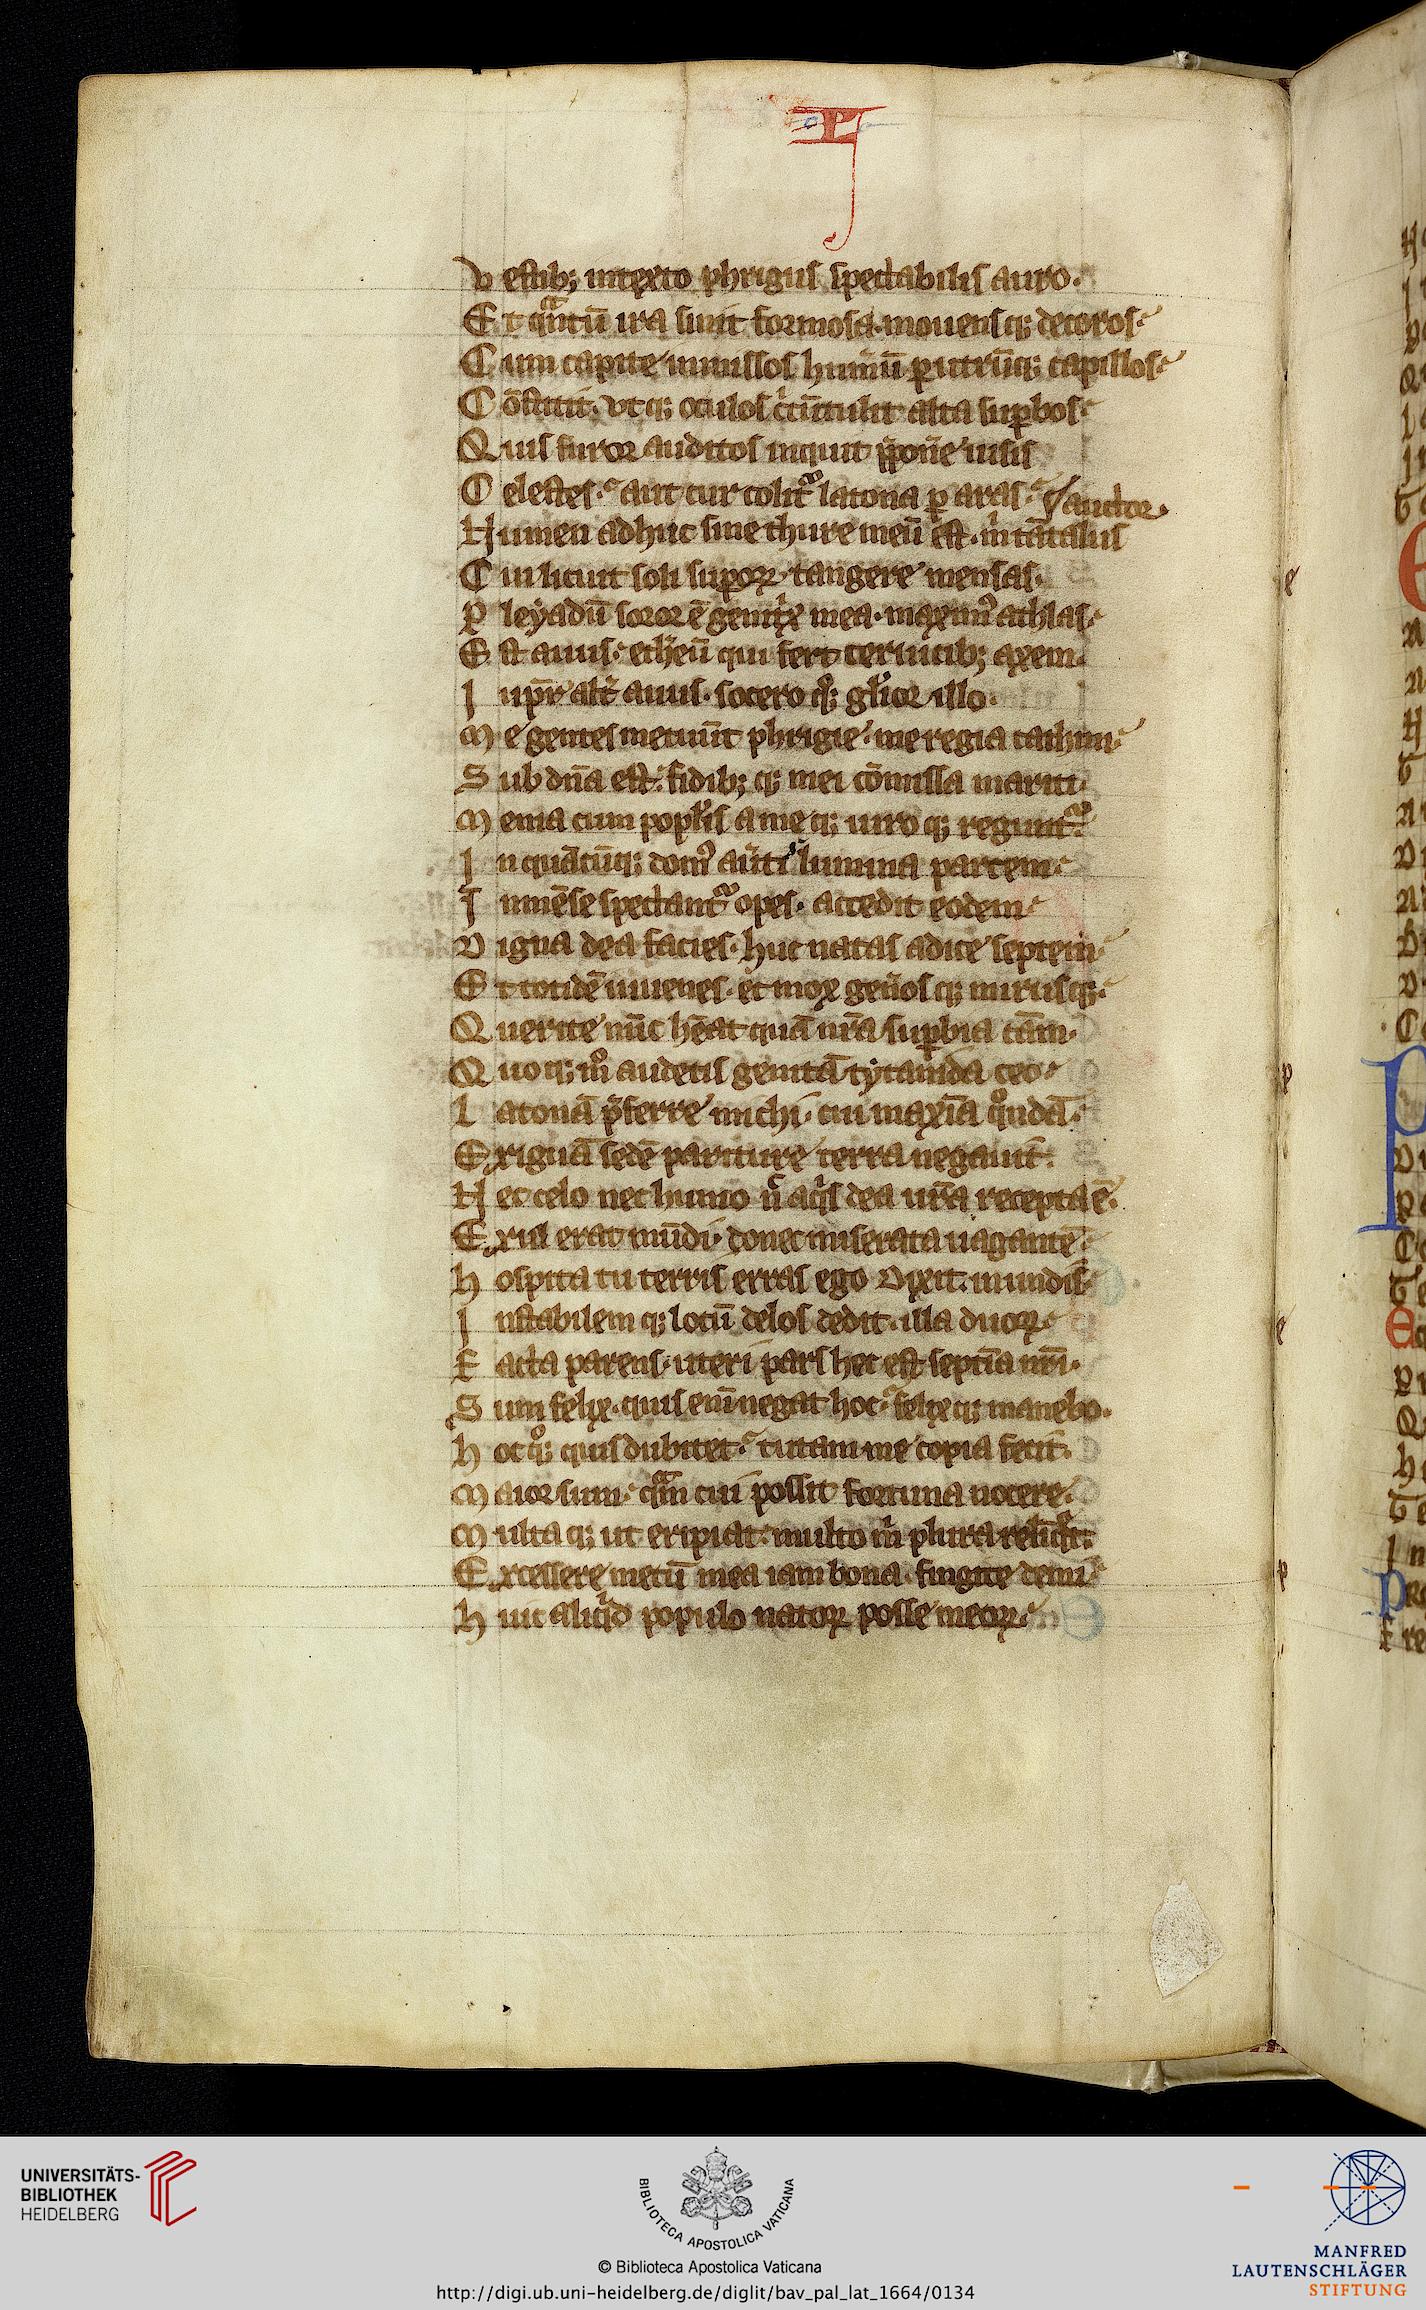 P
V estib; intexto phrigiis spectabilis auro.
E t qͣntū ira sinit formosa. mouens q; decoros
C um capite inmissos humerū ꝑ utrūq; capillos
C ōstitit. vt q; oculos circūtulit alta suꝑbos
Q uis furor auditos inquit p̄pon̄e uisis
C elestes. aut cur colit᷑ latona ꝑ aras
auctor.
N umen adhuc sine thure meū est. m̄ tātalus
C ui licuit soli suꝑoꝝ tangere mensas.
P leyadū soror ē genitͥx mea. maximꝰ athlas
E st auus. etheriū qui fert ceruicib; axem.
I upi᷑ alt᷑ auus. socero qͦ; gl̄ior illo.
M e gentes metuūt phrigie. me regia cathmi
S ub dn̄a est. fidib; q; mei cōmissa mariti
M enia cum popl̄is a me q; uiro q; regunt᷑.
I n quācūq; domꝰ au᷑ti lumina partem
I mmēse spectant᷑ opes. accedit eodem
D igna dea facies. huc natas adice septem
E t totidē iuuenes. et mox gen̄os q; nurus q;
Q uerite nūc hēat quā nr̄a suꝑbia cām.
Q uo q; mͦ audetis genitā tytanida ceo
L atonā p̄ferre michi. cui maxīa qͦndā.
E xiguā sedē pariture terra negauit.
N ec celo nec humo n̄ aqͥs dea ur̄a recepta ē.
E xul erat mūdi. donec miserata uagantē
H ospita tu terris erras ego dixit. in undis
I nstabilem q; locū delos dedit. illa duoꝝ
F acta parens. uteri pars hec est septīa nr̄i.
S um felix. quis eni᷑ negat hoc. felix q; manebo.
H oc qͦ; quis dubitet. tutam me copia fecit.
M aior sum. qͣm cui possit fortuna nocere.
M ulta q; ut eripiat. multo m̄ plura relinq̄t.
E xcessere metū mea iam bona. fingite demi
H uic aliqͥd populo natoꝝ posse meoꝝ.
UNIVERSITÄTS-
BIBLIOTHEK
HEIDELBERG
BIBLIOTECA APOSTOLICA VATICANA
© Biblioteca Apostolica Vaticana
http://digi.ub.uni-heidelberg.de/diglit/bav_pal_lat_1664/0134
MANFRED
LAUTENSCHLÄGER
STIFTUNG